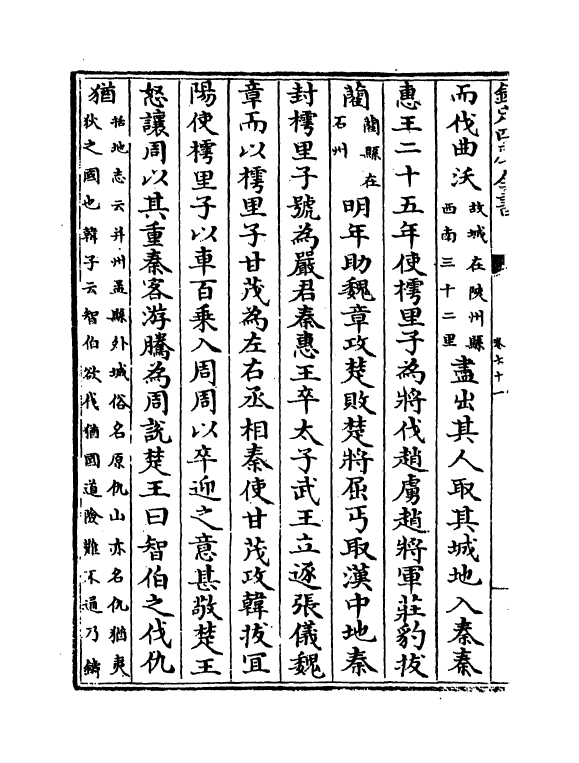 欽定四庫全書
卷七十一
而伐曲沃故城在陜州縣西南三十二里盡出其人取其城地入秦秦
惠王二十五年使樗里子為將伐趙虜趙將軍莊豹拔
藺藺縣在石州明年助魏章攻楚敗楚將屈丐取漢中地秦
封樗里子號為嚴君秦惠王卒太子武王立逐張儀魏
章而以樗里子甘茂為左右丞相秦使甘茂攻韓拔宜
陽使樗里子以車百乘入周周以卒迎之意甚敬楚王
怒讓周以其重秦客游騰為周說楚王曰智伯之伐仇
猶括地志云并州盂縣外城俗名原仇山亦名仇猶夷狄之國也韓子云智伯欲伐猶國道險難不通乃鑄